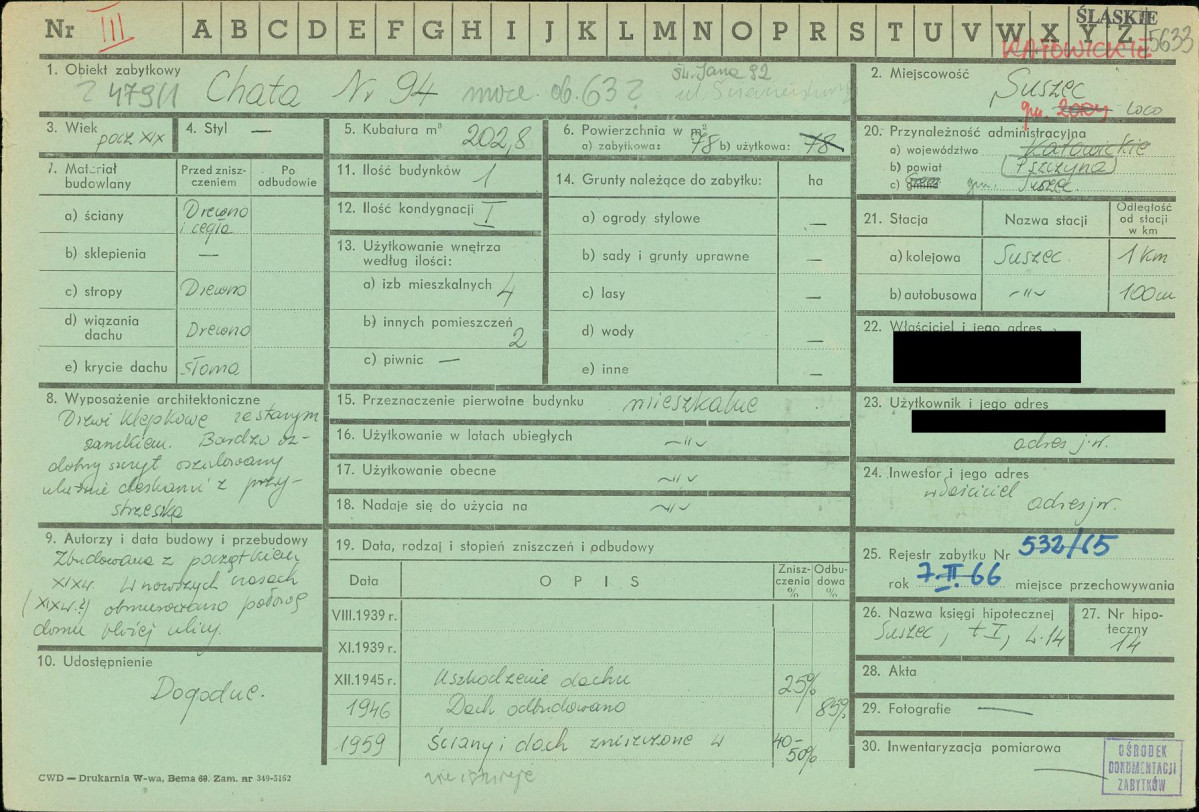 Nr III A B C D E F G H I J K L M N O P R S T U V W X Y Z
ŚLĄSKIE
KATOWICKIE 5633
1. Obiekt zabytkowy
Chata Nr 94
św. Jana 92
2. Miejscowość
Suszec
gm. loco
3. Wiek
pocz XIX
4. Styl —
5. Kubatura m³
202,8
6. Powierzchnia w m²
a) zabytkowa: 78 b) użytkowa: 78
20. Przynależność administracyjna
a) województwo Katowickie
b) powiat Pszczyna
c) gmina gm. Suszec
7. Materiał budowlany
Przed zniszczeniem
Po odbudowie
a) ściany Drewno i cegła
b) sklepienia —
c) stropy Drewno
d) wiązania dachu Drewno
e) krycie dachu słoma
11. Ilość budynków 1
12. Ilość kondygnacji I
13. Użytkowanie wnętrza według ilości:
a) izb mieszkalnych 4
b) innych pomieszczeń 2
c) piwnic —
14. Grunty należące do zabytku: ha
a) ogrody stylowe —
b) sady i grunty uprawne —
c) lasy —
d) wody —
e) inne —
21. Stacja
Nazwa stacji
Odległość od stacji w km
a) kolejowa Suszec 1 Km
b) autobusowa -"- 100 m
22. Właściciel i jego adres
23. Użytkownik i jego adres
adres j.w.
24. Inwestor i jego adres
właściciel
adres jw.
8. Wyposażenie architektoniczne
Drzwi klepkowe ze starym
zamkiem. Bardzo oz-
dobny szczyt oszalowany
deskami z przy-
strzeską
15. Przeznaczenie pierwotne budynku mieszkalne
16. Użytkowanie w latach ubiegłych -"-
17. Użytkowanie obecne -"-
18. Nadaje się do użycia na -"-
9. Autorzy i data budowy i przebudowy
Zbudowana z początkiem
XIX w. W nowszych czasach
(XIX w.?) obmurowano połowę
domu bliżej ulicy.
10. Udostępnienie
Dogodne.
19. Data, rodzaj i stopień zniszczeń i odbudowy
Data
OPIS
Zniszczenia %
Odbudowa %
VIII.1939 r.
XI.1939 r.
XII.1945 r. Uszkodzenie dachu 25%
1946 Dach odbudowano 85%
1959 Ściany i dach zniszczone w 40-50%
nie istnieje
25. Rejestr zabytku Nr 532/65
rok 7.II.66 miejsce przechowywania
26. Nazwa księgi hipotecznej
Suszec, t I, w. 14
27. Nr hipoteczny
14
28. Akta
29. Fotografie —
30. Inwentaryzacja pomiarowa —
OŚRODEK
DOKUMENTACJI
ZABYTKÓW
CWD — Drukarnia W-wa, Bema 60. Zam. nr 349-5162